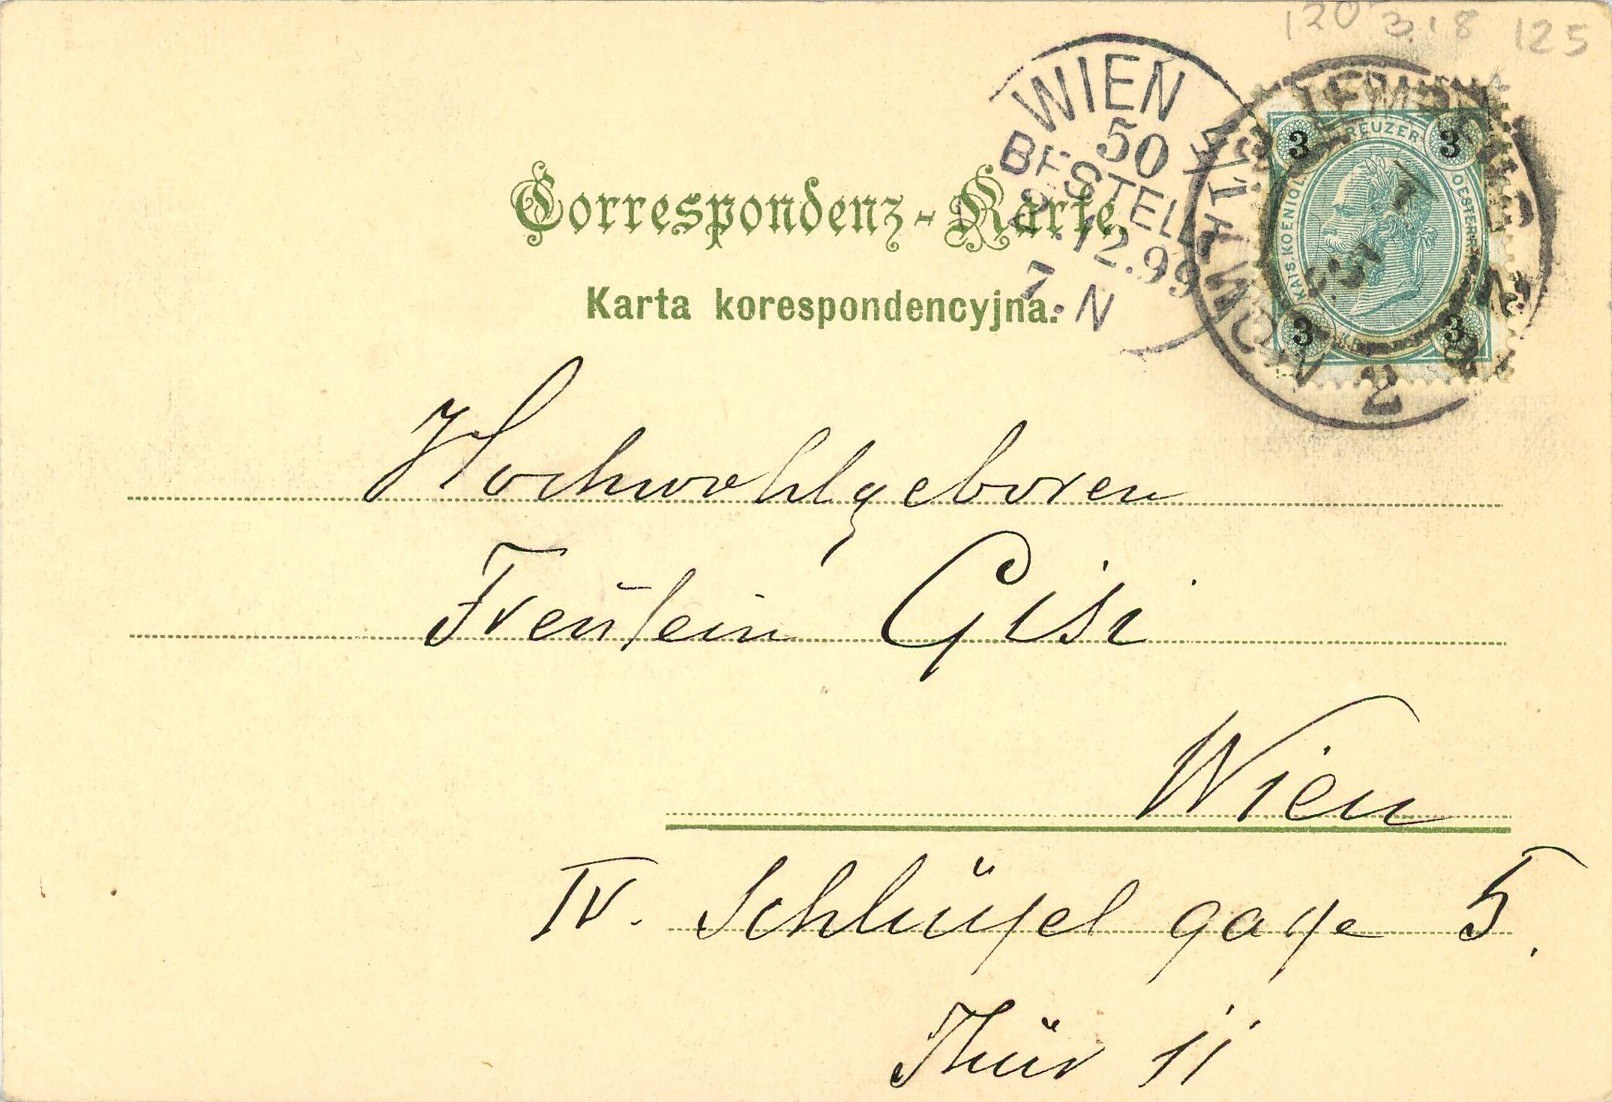 120 3.18 125
WIEN
50
BESTELLT
2.12.99
7.N
LEMBERG 2
LWÓW 2
3 KREUZER 3
KAIS.KOENIGL. OESTERR.
3 3
Correspondenz-Karte.
Karta korespondencyjna.
Hochwohlgeboren
Freülein Gisi
Wien
IV. Schlüsselgasse 5.
Thür 11